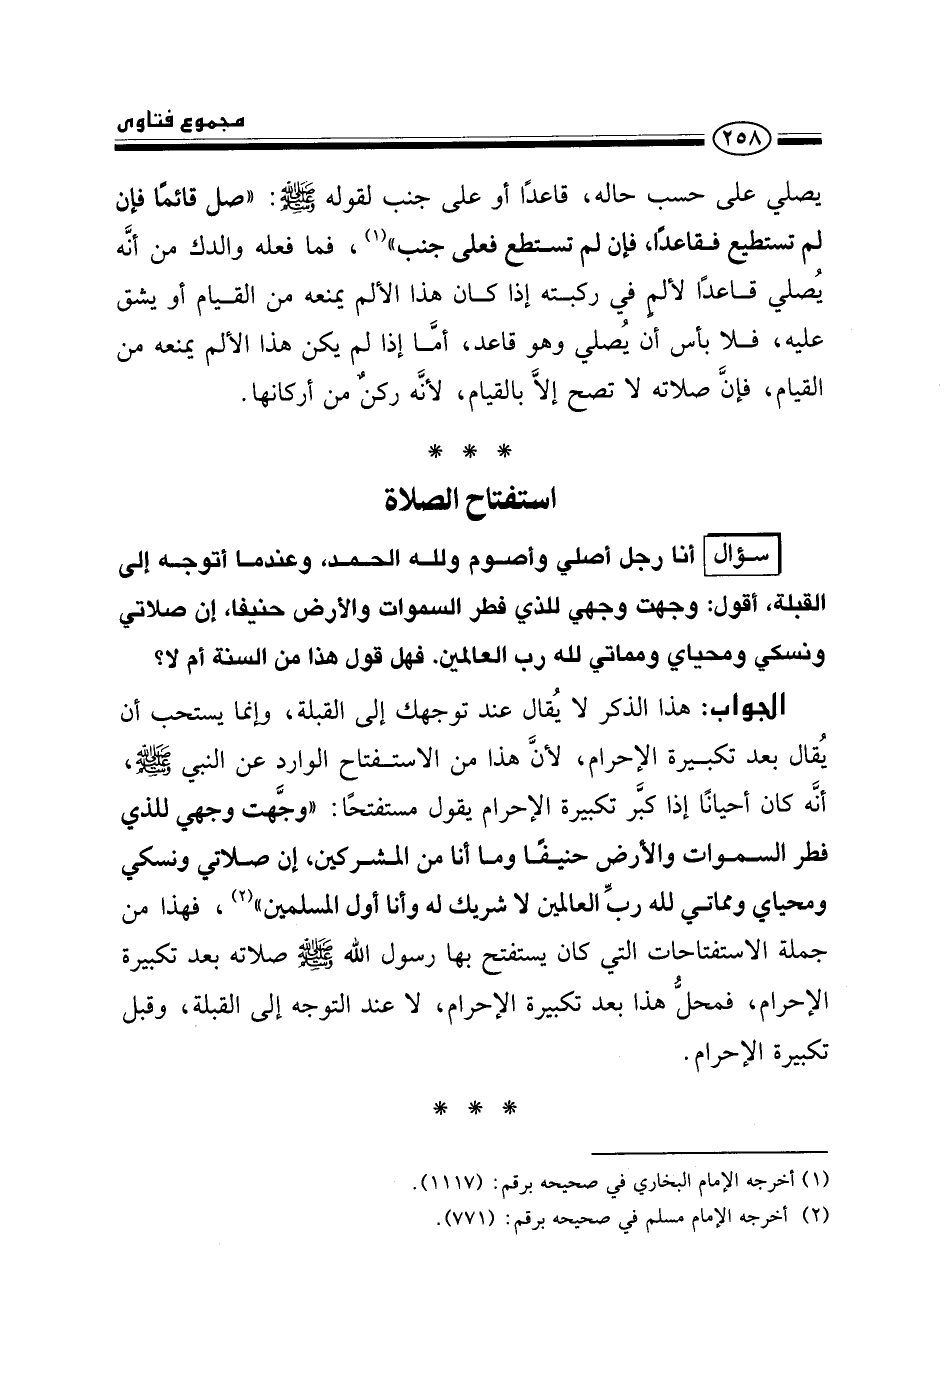 مجموع فتاوى
٢٥٨
يصلي على حسب حاله، قاعدًا أو على جنب لقوله ﷺ: «صل قائمًا فإن
لم تستطيع فـقاعدًا، فإن لم تستطع فعلى جنب»(١)، فما فعله والدك من أنَّه
يُصلي قـاعدًا لألمٍ في ركبته إذا كـان هذا الألم يمنعه من القـيام أو يشق
عليه، فـلا بأس أن يُصلي وهو قاعد، أمَّـا إذا لم يكن هذا الألم يمنعه من
القيام، فإنَّ صلاته لا تصح إلاَّ بالقيام، لأنَّه ركنٌ من أركانها.
* * *
استفتاح الصلاة
سـؤال أنا رجل أصلي وأصـوم ولله الحـمد، وعندمـا أتوجـه إلى
القبلة، أقول: وجهت وجهي للذي فطر السموات والأرض حنيفا، إن صلاتي
ونسكي ومحياي ومماتي لله رب العالمين. فهل قول هذا من السنة أم لا؟
الجواب: هذا الذكر لا يُقال عند توجهك إلى القبلة، وإنما يستحب أن
يُقال بعد تكبـيرة الإحرام، لأنَّ هذا من الاستـفتاح الوارد عن النبي ﷺ،
أنَّه كان أحيانًا إذا كبَّر تكبيرة الإحرام يقول مستفتحًا: «وجَّهت وجهي للذي
فطر السـموات والأرض حنيـفًـا ومـا أنا من المشـركين، إن صـلاتي ونسكي
ومحياي ومماتـي لله ربِّ العالمين لا شريك له وأنا أول المسلمين»(٢)، فهذا من
جملة الاستفتاحات التي كان يستفتح بها رسول الله ﷺ صلاته بعد تكبيرة
الإحرام، فمحلُّ هذا بعد تكبيرة الإحرام، لا عند التوجه إلى القبلة، وقبل
تكبيرة الإحرام.
* * *
(١) أخرجه الإمام البخاري في صحيحه برقم: (١١١٧).
(٢) أخرجه الإمام مسلم في صحيحه برقم: (٧٧١).